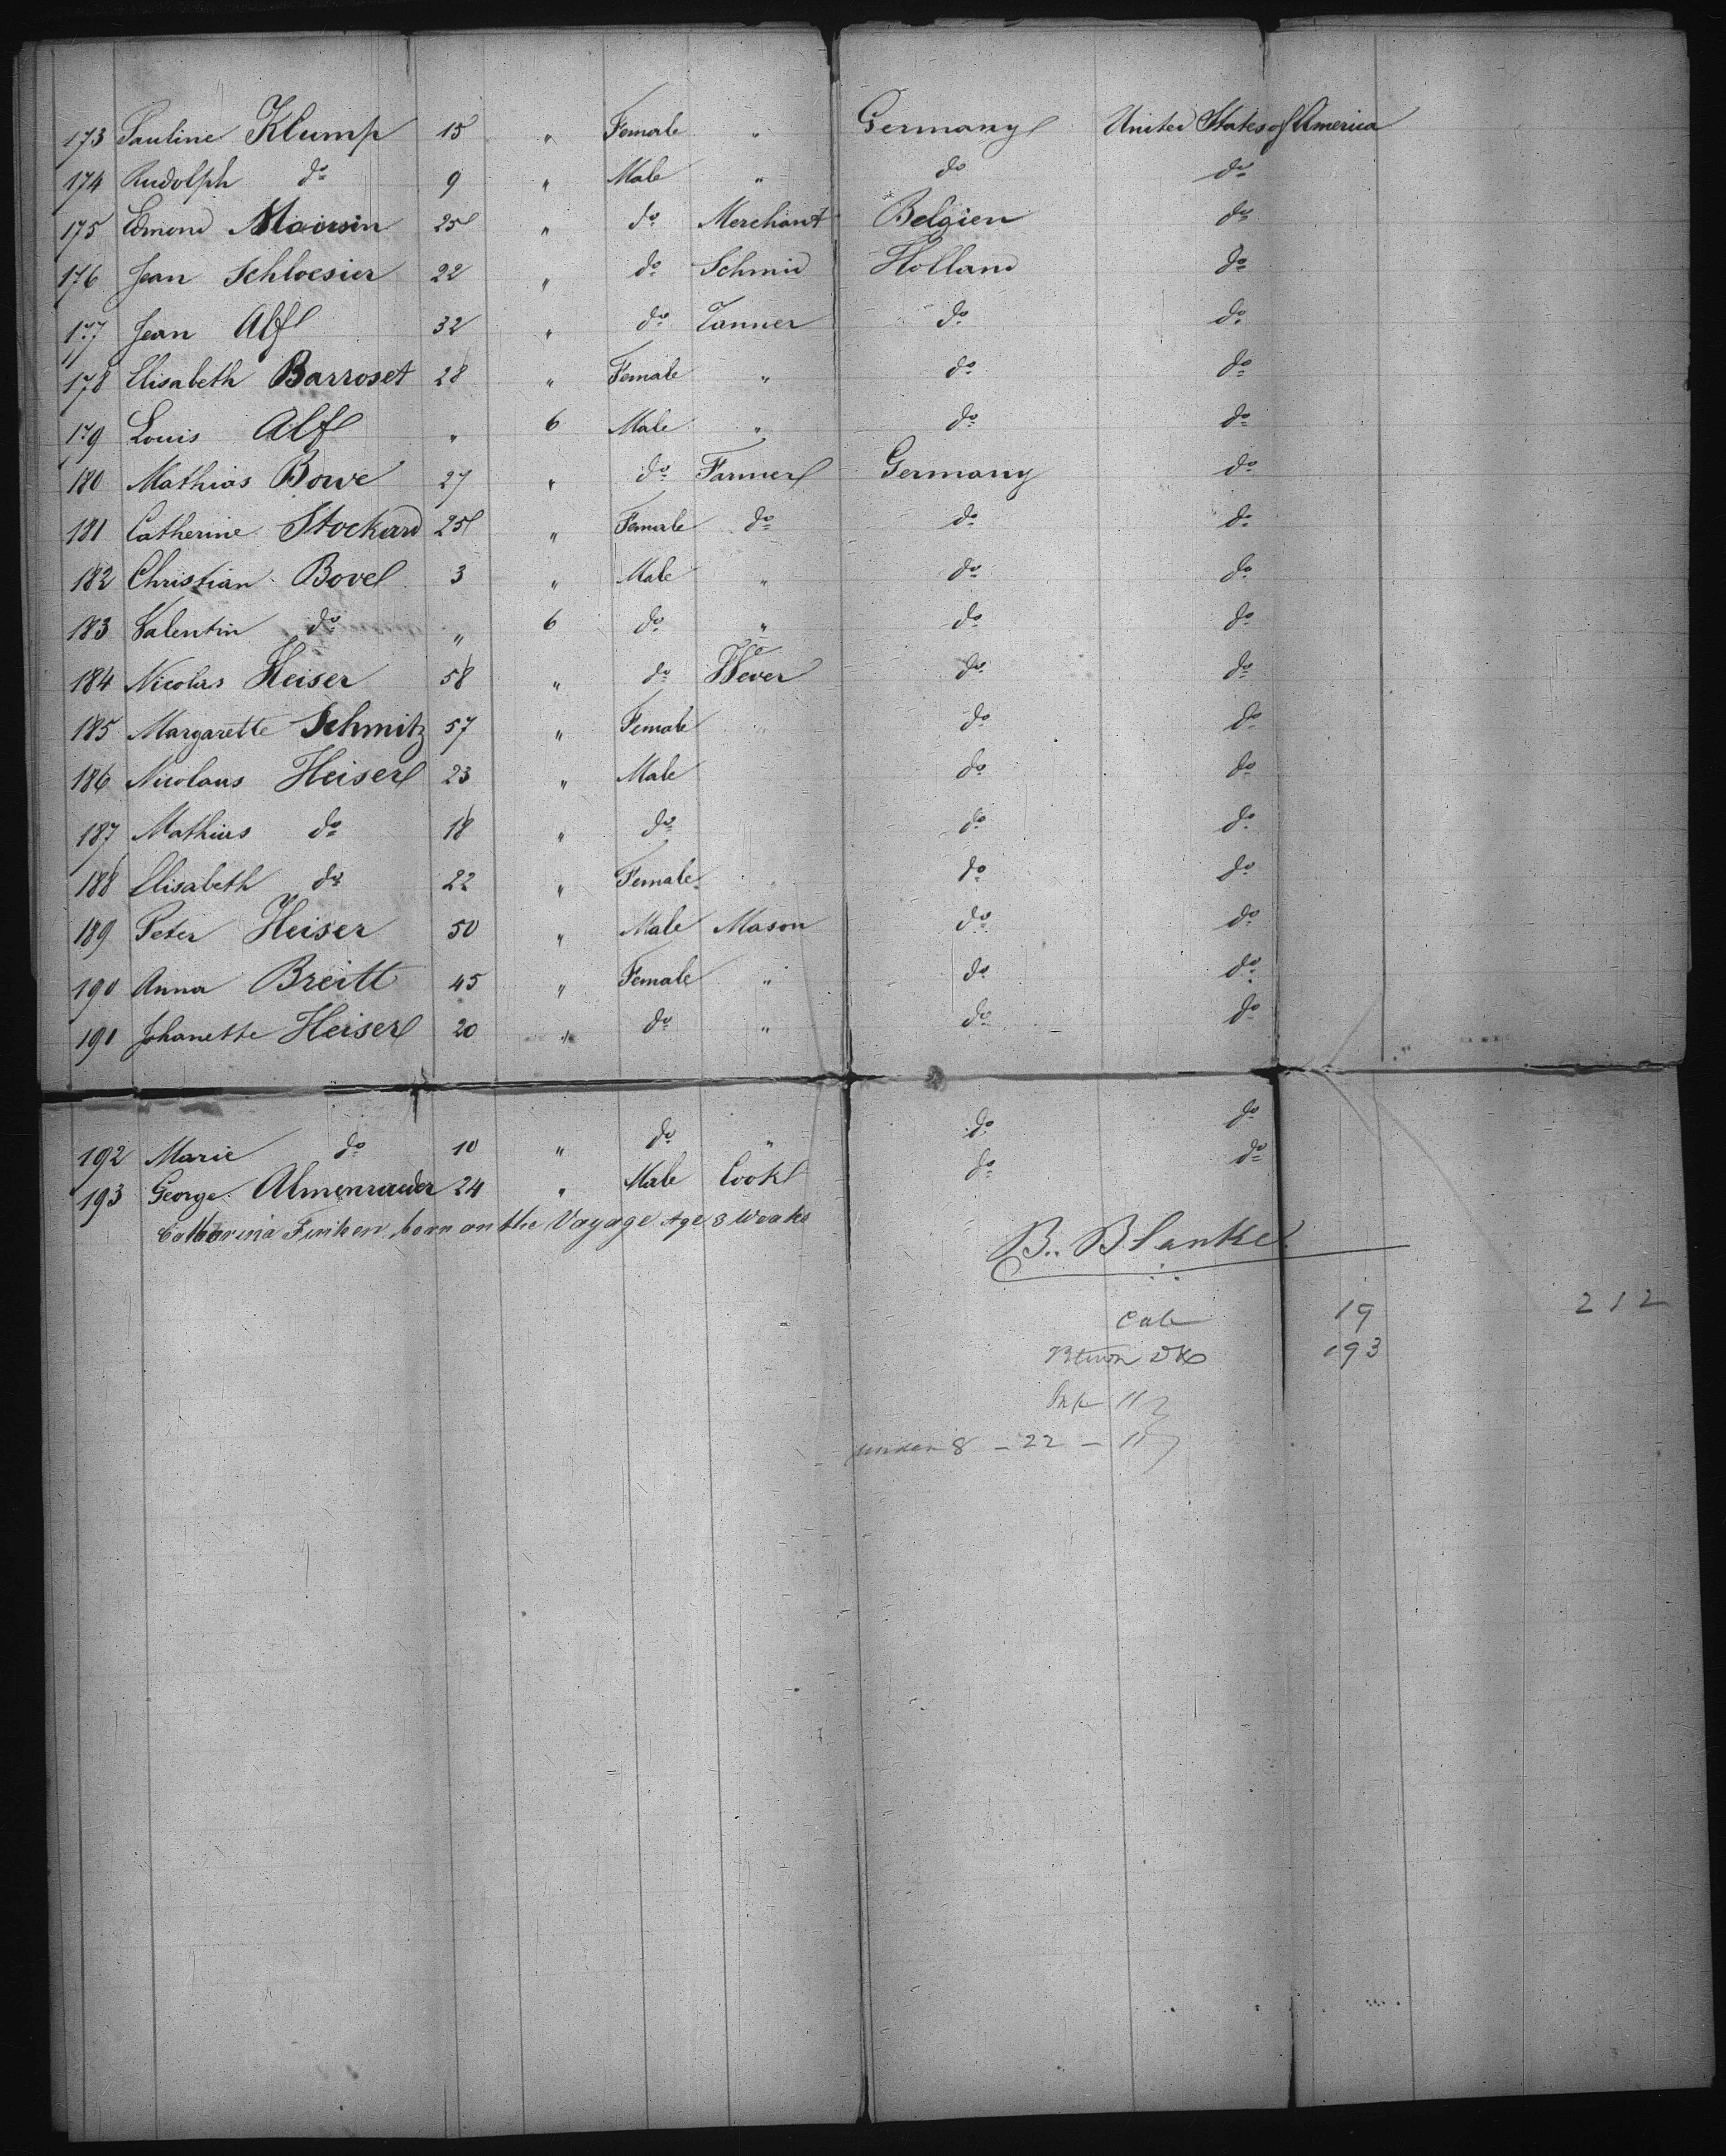 173 Pauline Klump 15 " Female " Germany United States of America
174 Rudolph do 9 " Male " do do
175 Edmond 25 " do Merchant Belgien do
176 Jean Schloesier 22 " do Schmid Holland do
177 Jean Alf 32 " do Tanner do do
178 Elisabeth Barroset 28 " Female " do do
179 Louis Alf " 6 Male " do do
180 Mathias Bowe 27 " do Farmer Germany do
181 Catherine Stockard 25 " Female do do do
182 Christian Bove 3 " Male " do do
183 Valentin do " 6 do " do do
184 Nicolas Heiser 58 " do Wever do do
185 Margarette Schmitz 57 " Female " do do
186 Nicolaus Heiser 23 " Male do do
187 Mathias do 18 " do do do
188 Elisabeth do 22 " Female " do do
189 Peter Heiser 50 " Male Mason do do
190 Anna Breitt 45 " Female " do do
191 Johanette Heiser 20 " do " do do
192 Marie do 10 " do " do do
193 George Almenrauder 24 " Male Cook do do
Catharina Finken born on the Voyage Age 3 Weaks
B. Blanke
Cab 19 212
193
11
under 8 - 22 - 11